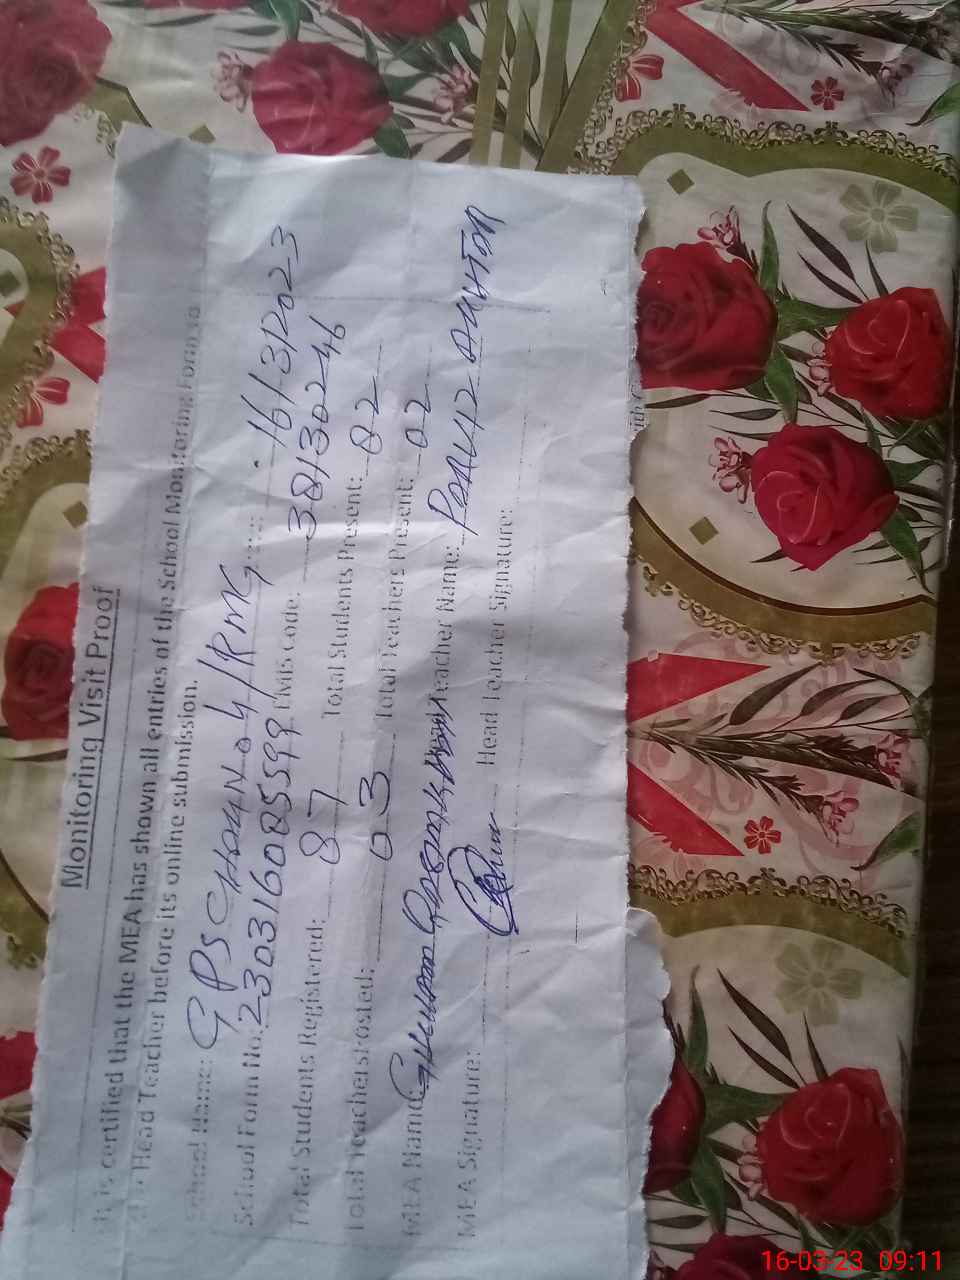 Monitoring Visit Proof
It is certified that the MEA has shown all entries of the School Monitoring Form to
the Head Teacher before its online submission.
School Name: GPS CHOAN 04/RMG Date: 16/3/2023
School Form No: 230316085599 EMIS Code: 38130246
Total Students Registered: 87 Total Students Present: 82
Total Teachers Posted: 03 Total Teachers Present: 02
MEA Name: GHULAM Teacher Name: PARVIZ AKHTAR
MEA Signature: Head Teacher Signature:
16-03-23 09:11